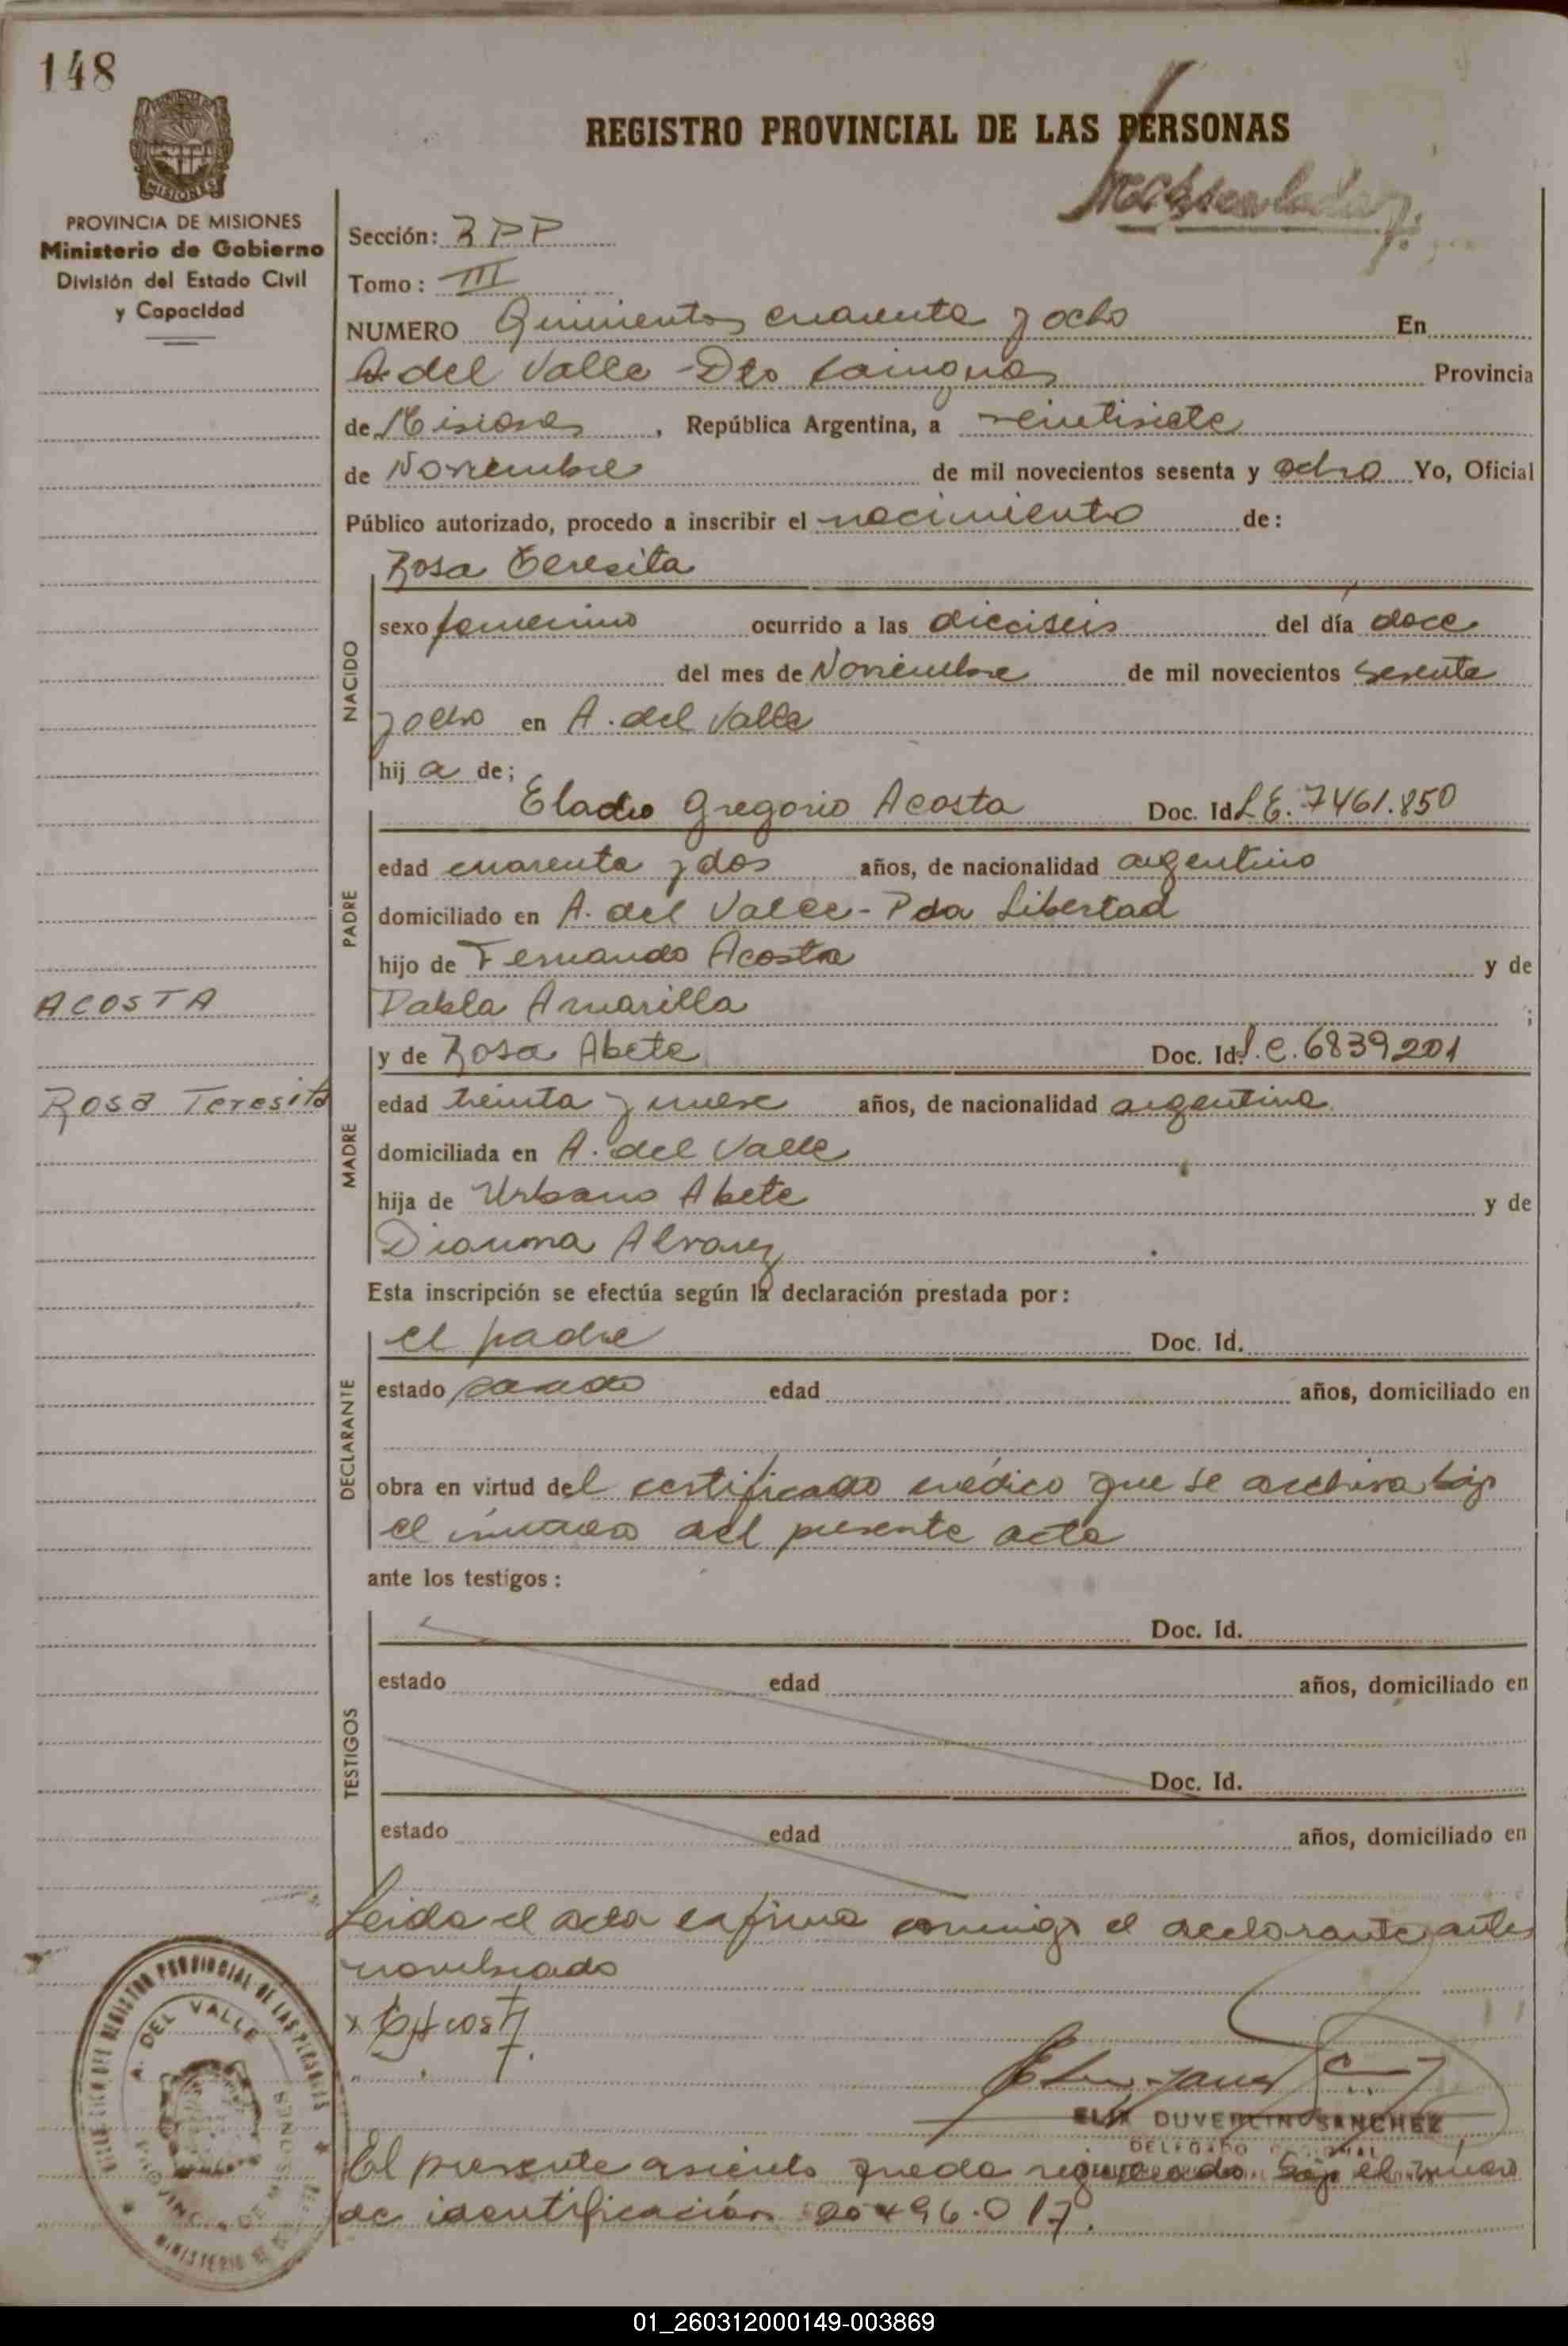 148
REGISTRO PROVINCIAL DE LAS PERSONAS
PROVINCIA DE MISIONES
Ministerio de Gobierno
División del Estado Civil
y Capacidad
Sección: RPP
Tomo: III
NUMERO Quinientos cuarenta y ocho En
A. del Valle - Dto Cainguas Provincia
de Misiones, República Argentina, a veintisiete
de Noviembre de mil novecientos sesenta y ocho Yo, Oficial
Público autorizado, procedo a inscribir el nacimiento de:
Rosa Teresita
NACIDO
sexo femenino ocurrido a las dieciseis del día doce
del mes de Noviembre de mil novecientos sesenta
y ocho en A. del Valle
hij a de;
Eladio Gregorio Acosta Doc. Id L.E. 7461.850
PADRE
edad cuarenta y dos años, de nacionalidad argentino
domiciliado en A. del Valle - Pda Libertad
hijo de Fernando Acosta y de
Pabla Amarilla ;
ACOSTA
y de Rosa Abete Doc. Id. L.C. 6839201
Rosa Teresita
MADRE
edad treinta y nueve años, de nacionalidad argentina
domiciliada en A. del Valle
hija de Urbano Abete y de
Alvarez
Esta inscripción se efectúa según la declaración prestada por:
el padre Doc. Id.
DECLARANTE
estado casado edad años, domiciliado en
obra en virtud del certificado médico que se archiva bajo
el número del presente acta
ante los testigos:
TESTIGOS
Doc. Id.
estado edad años, domiciliado en
Doc. Id.
estado edad años, domiciliado en
Leida el acta la firma conmigo el declarante antes
nombrado
A. DEL VALLE
DUVERLIN SANCHEZ
El presente asiento queda registrado bajo el número
de identificación 20496.017.
01_260312000149-003869